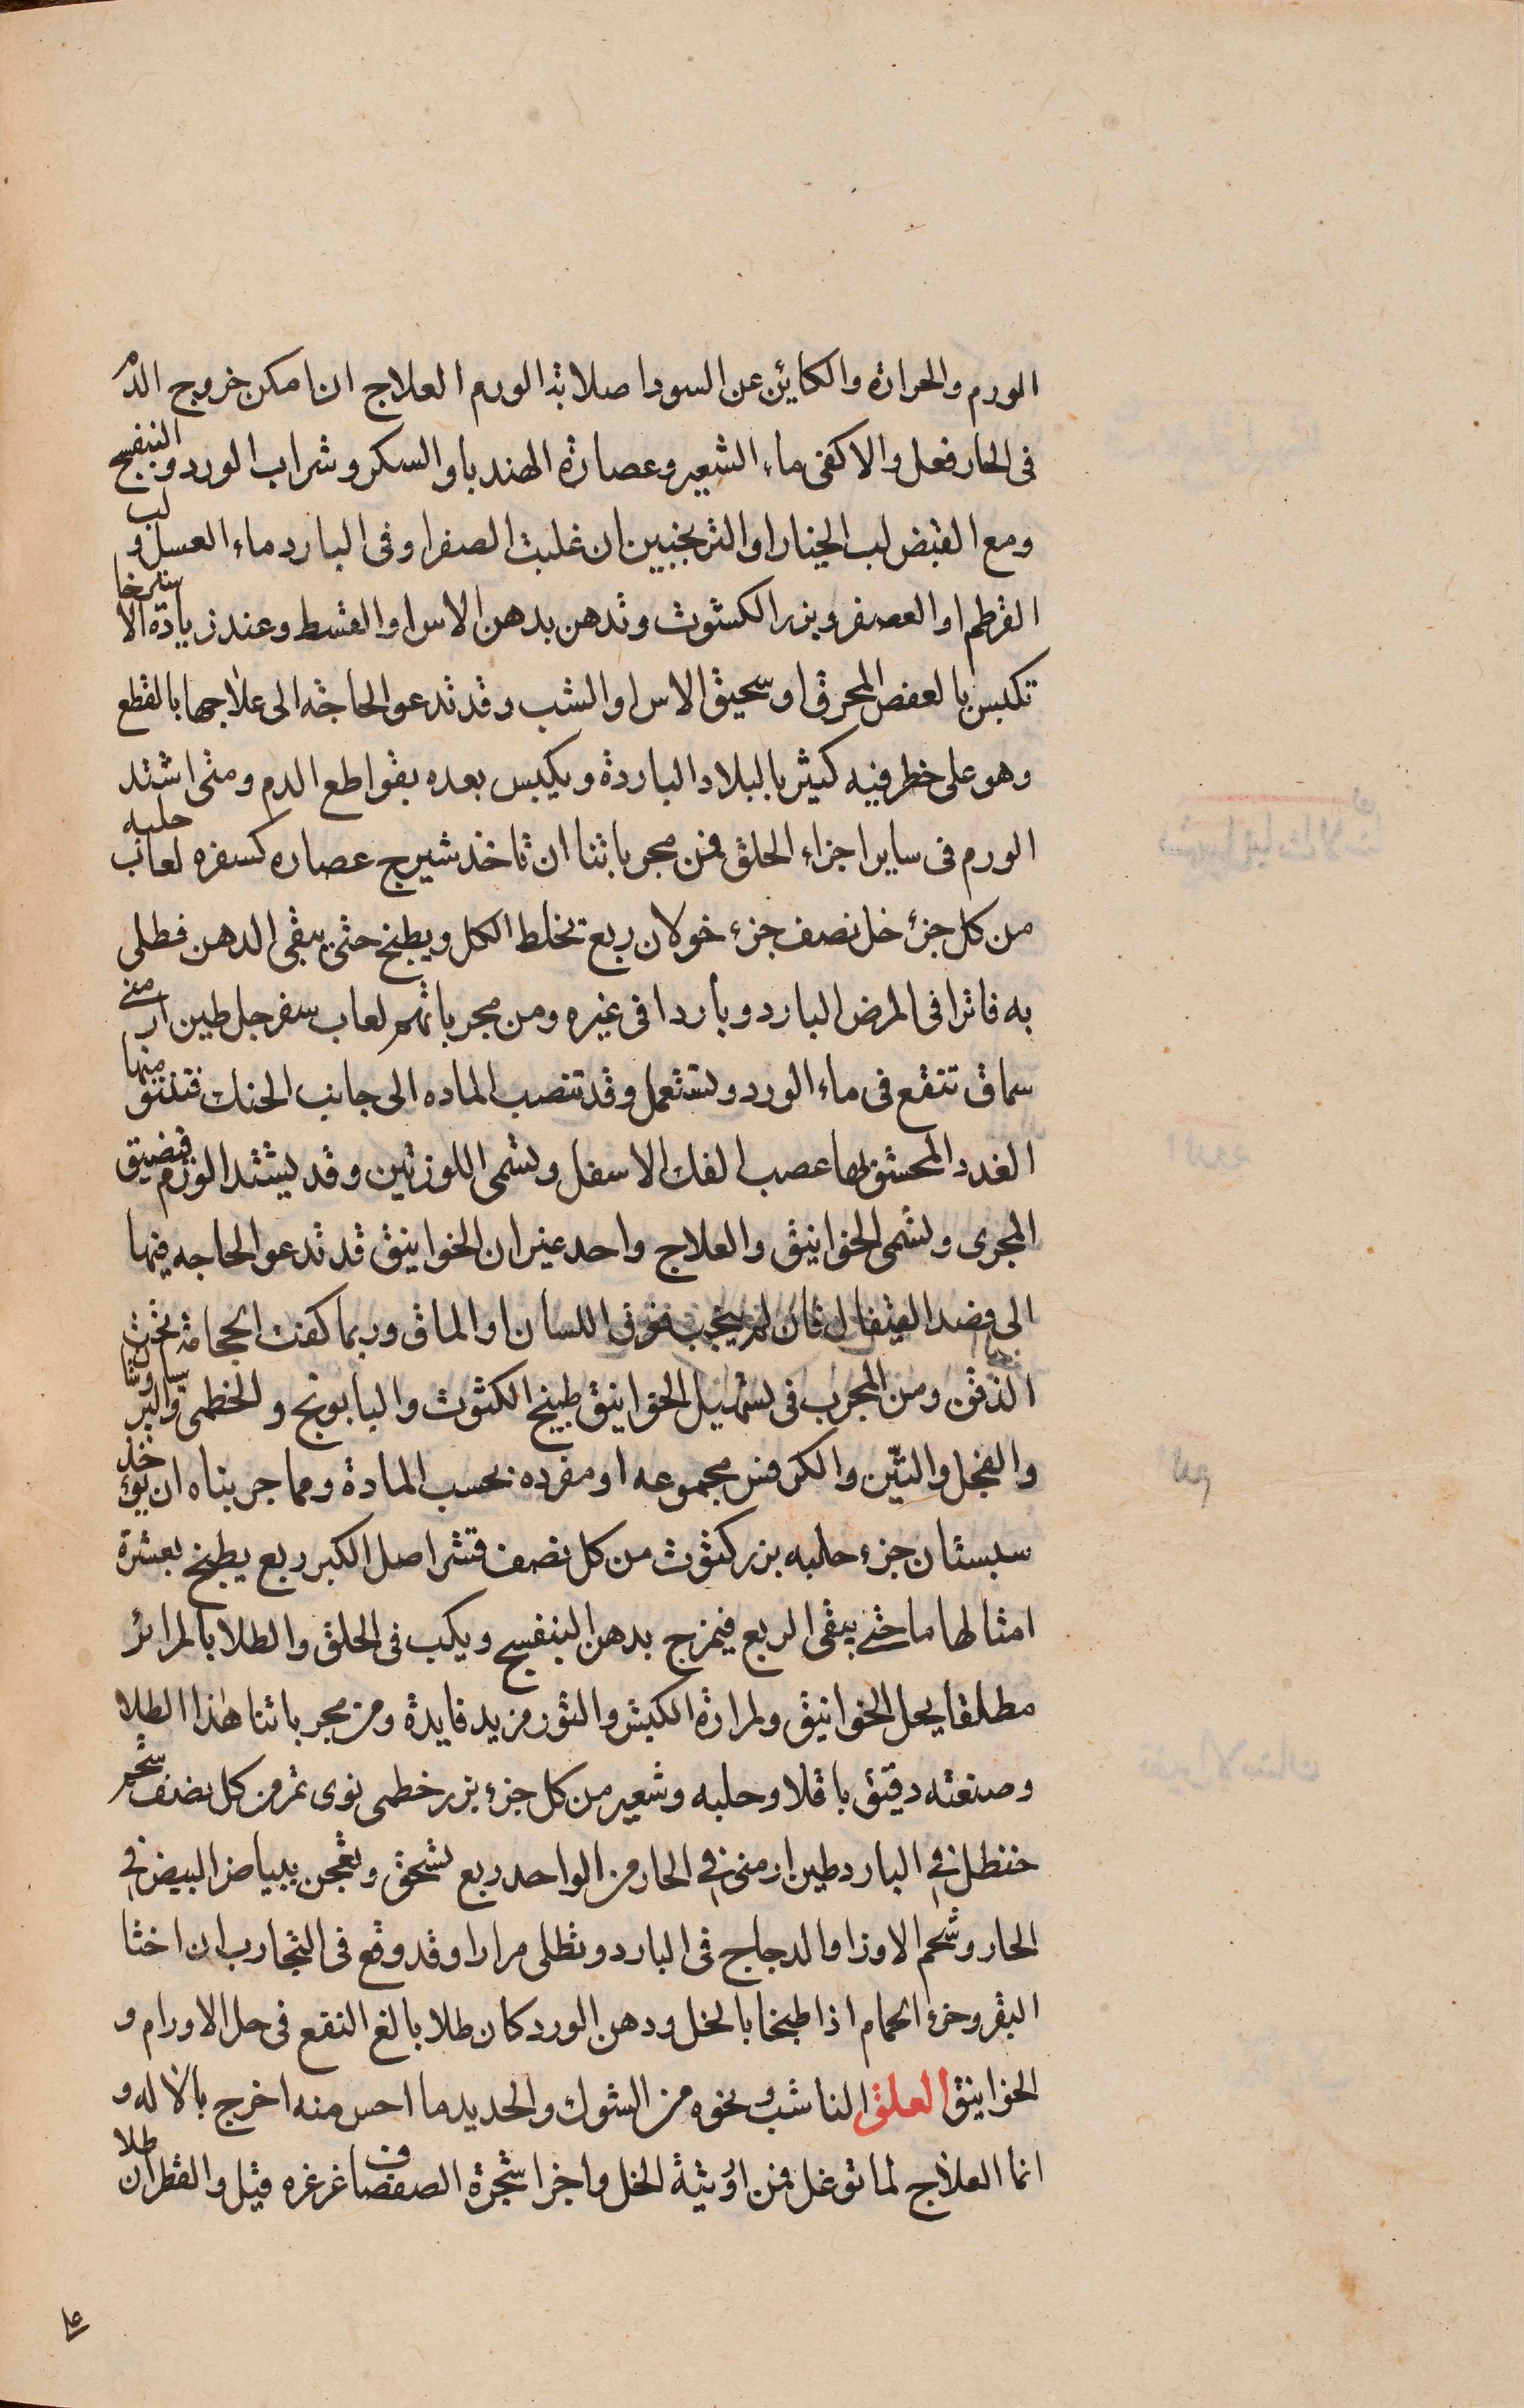 الورم والحرارة والكاين عن السودا صلابة الورم العلاج ان امكن خروج الدم
فى الحار فعل والا كفى ماء الشعير وعصارة الهندبا والسكر وشراب الورد والبنفسج
ومع القبض لب الخيار او الترنجبين ان غلبت الصفرا وفى البارد ماء العسل ولب
القرطم او العصفر وبزر الكشوث وتدهن بدهن الاس او القسط وعند زيادة الاسترخا
تكبس بالعفص المحرق او سحيق الاس او الشب وقد تدعو الحاجة الى علاجها بالقطع
وهو على خطر فيه كثير بالبلاد الباردة ويكبس بعده بقواطع الدم ومتى اشتد
الورم فى ساير اجزاء الحلق فمن مجرباتنا ان تاخذ شيرج عصاره كسفره لعاب حلبه
من كل جزء خل نصف جزء خولان ربع تخلط الكل ويطبخ حتى يبقى الدهن فطلى
به فاترا فى المرض البارد وباردا فى غيره ومن مجرباتهم لعاب سفرجل طين ارمنى
سماق تنقع فى ماء الورد وتستعمل وقد تنصب الماده الى جانب الحنك فتنتو منها
الغدد المحشو بها عصب الفك الاسفل وتسمى اللوزتين وقد يشتد الورم فيضيق
المجرى وتسمى الخوانيق والعلاج واحد غير ان الخوانيق قد تدعو الحاجه فيها
الى فصد القيفال فان لم يجب فعرق اللسان او الماق وربما كفت الحجامة تحت
الذقن ومن المجرب فى تسهيل الخوانيق طبيخ الكثوث والبابونج والخطمى والبرسياوشا
والفجل والتين والكرفس مجموعه او مفرده بحسب المادة ومما جربناه ان يؤخذ
سبستان جزء حلبه بزر كثوث من كل نصف قشر اصل الكبر ربع يطبخ بعشرة
امثالها ما حتى يبقى الربع فيمزج بدهن البنفسج ويكب فى الحلق والطلا بالمرائر
مطلقا يحل الخوانيق ولمرارة الكبش والثور مزيد فايدة ومن مجرباتنا هذا الطلا
وصنعته دقيق باقلا وحلبه وشعير من كل جزء بزر خطمى نوى تمر من كل نصف شحم
حنظل فى البارد طين ارمنى فى الحار من الواحد ربع تسحق وتعجن ببياض البيض فى
الحار وشحم الاوز او الدجاج فى البارد وتطلى مرارا وقد وقع فى التجارب ان اخثا
البقر وخرء الحمام اذا طبخا بالخل ودهن الورد كان طلا بالغ النفع فى حل الاورام و
الخوانيق العلق الناشب ونحوه من الشوك والحديد ما احس منه اخرج بالاله و
انما العلاج لما توغل فمن ادويته الخل واجزا شجرة الصفصاف غرغره قيل والقطران طلا